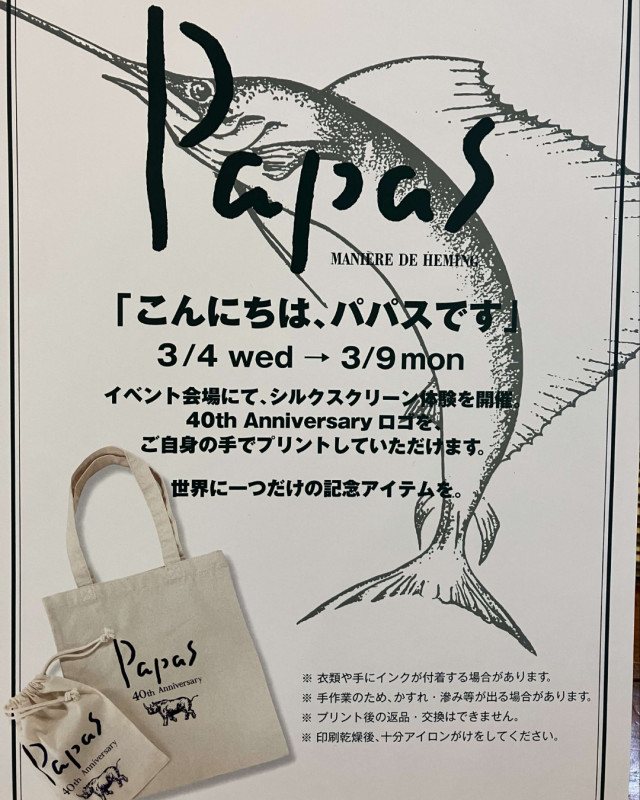 Papas
MANIÈRE DE HEMING
「こんにちは、パパスです」
3/4 wed → 3/9 mon
イベント会場にて、シルクスクリーン体験を開催。
40th Anniversary ロゴを、
ご自身の手でプリントしていただけます。
世界に一つだけの記念アイテムを。
Papas
40th Anniversary
Papas
40th Anniversary
※ 衣類や手にインクが付着する場合があります。
※ 手作業のため、かすれ・滲み等が出る場合があります。
※ プリント後の返品・交換はできません。
※ 印刷乾燥後、十分アイロンがけをしてください。